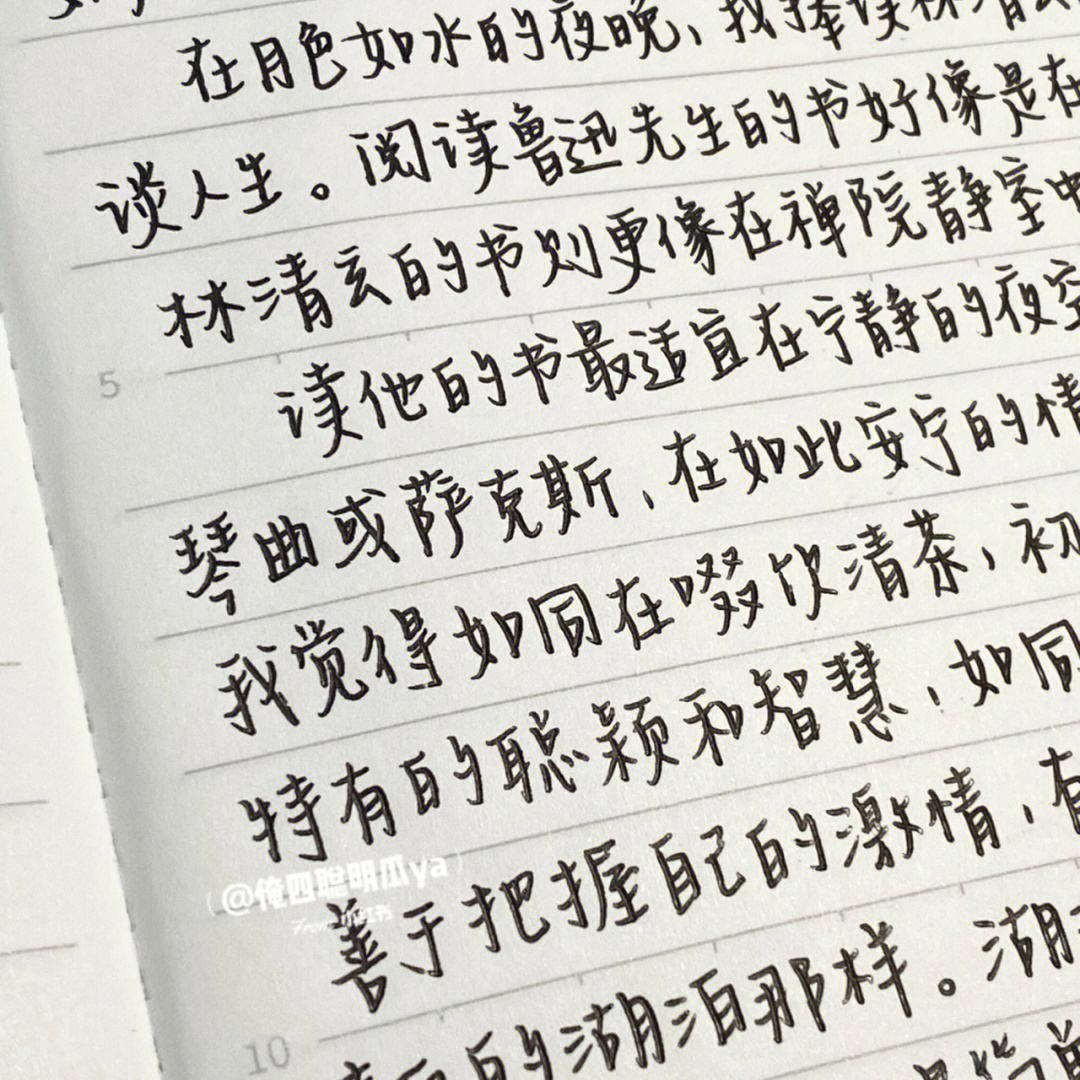 在月色如水的夜晚，我捧读林清
谈人生。阅读鲁迅先生的书好像是在
林清玄的书则更像在禅院静室中
5
读他的书最适宜在宁静的夜空
琴曲或萨克斯，在如此安宁的情
我觉得如同在啜饮清茶，初
特有的聪颖和智慧，如同
善于把握自己的激情，有
@俺四聪明瓜ya
From 小红书
10
的湖泊那样。湖